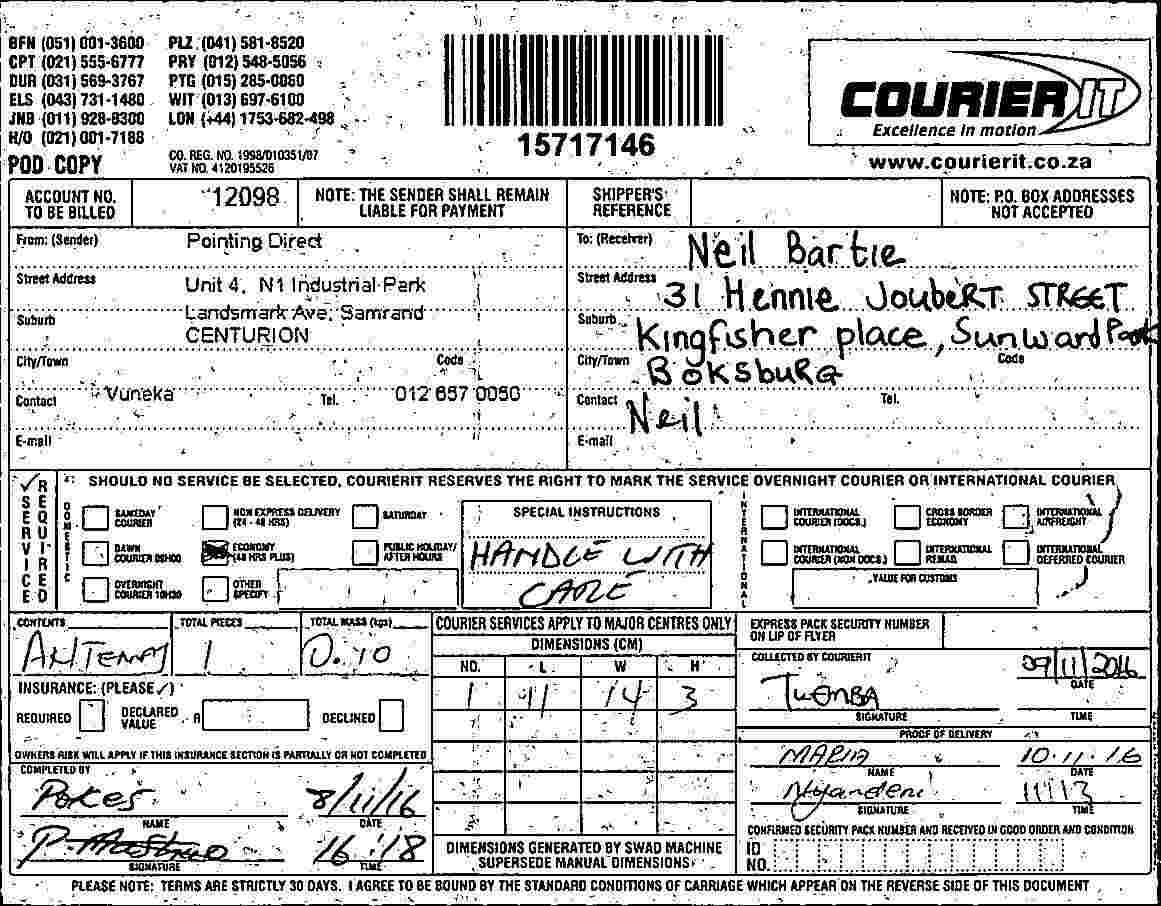 BFN (051) 001-3600 PLZ (041) 581-8520
CPT (021) 555-6777 PRY (012) 548-5056
DUR (031) 569-3767 PTG (015) 285-0060
ELS (043) 731-1480 WIT (013) 697-6100
JNB (011) 928-8300 LON (+44) 1753-682-498
H/O (021) 001-7188
POD COPY
CO. REG. NO. 1998/010351/07
VAT NO. 4120195526
15717146
COURIER IT
Excellence in motion
www.courierit.co.za
ACCOUNT NO. TO BE BILLED 12098
NOTE: THE SENDER SHALL REMAIN LIABLE FOR PAYMENT
SHIPPER'S REFERENCE
NOTE: P.O. BOX ADDRESSES NOT ACCEPTED
From: (Sender) Pointing Direct
Street Address Unit 4, N1 Industrial Park
Suburb Landsmark Ave, Samrand
CENTURION
City/Town Code
Contact Vuneka Tel. 012 657 0050
E-mail
To: (Receiver) Neil Bartie
Street Address 31 Hennie Joubert STREET
Suburb Kingfisher place, Sunward Park
City/Town Boksburg Code
Contact Neil Tel.
E-mail
SERVICE REQUIRED
SHOULD NO SERVICE BE SELECTED, COURIERIT RESERVES THE RIGHT TO MARK THE SERVICE OVERNIGHT COURIER OR INTERNATIONAL COURIER
DOMESTIC
SAMEDAY COURIER
NON EXPRESS DELIVERY (24 - 48 HRS)
SATURDAY
DAWN COURIER 09H00
ECONOMY (48 HRS PLUS)
PUBLIC HOLIDAY/ AFTER HOURS
OVERNIGHT COURIER 10H30
OTHER SPECIFY
SPECIAL INSTRUCTIONS
HANDLE WITH
CARE
INTERNATIONAL
INTERNATIONAL COURIER (DOCS.)
CROSS BORDER ECONOMY
INTERNATIONAL AIRFREIGHT
INTERNATIONAL COURIER (NON DOCS.)
INTERNATIONAL REMAIL
INTERNATIONAL DEFERRED COURIER
VALUE FOR CUSTOMS
CONTENTS TOTAL PIECES TOTAL MASS (kgs)
1 0.10
INSURANCE: (PLEASE ✓)
REQUIRED DECLARED VALUE R DECLINED
OWNERS RISK WILL APPLY IF THIS INSURANCE SECTION IS PARTIALLY OR NOT COMPLETED
COMPLETED BY
Pokes 8/11/16
NAME DATE
16:18
SIGNATURE TIME
COURIER SERVICES APPLY TO MAJOR CENTRES ONLY
DIMENSIONS (CM)
NO. L W H
1 11 14 3
DIMENSIONS GENERATED BY SWAD MACHINE SUPERSEDE MANUAL DIMENSIONS
EXPRESS PACK SECURITY NUMBER ON LIP OF FLYER
COLLECTED BY COURIERIT
09/11/2016
DATE
SIGNATURE TIME
PROOF OF DELIVERY
MARIA 10.11.16
NAME DATE
11113
SIGNATURE TIME
CONFIRMED SECURITY PACK NUMBER AND RECEIVED IN GOOD ORDER AND CONDITION
ID NO.
PLEASE NOTE: TERMS ARE STRICTLY 30 DAYS. I AGREE TO BE BOUND BY THE STANDARD CONDITIONS OF CARRIAGE WHICH APPEAR ON THE REVERSE SIDE OF THIS DOCUMENT